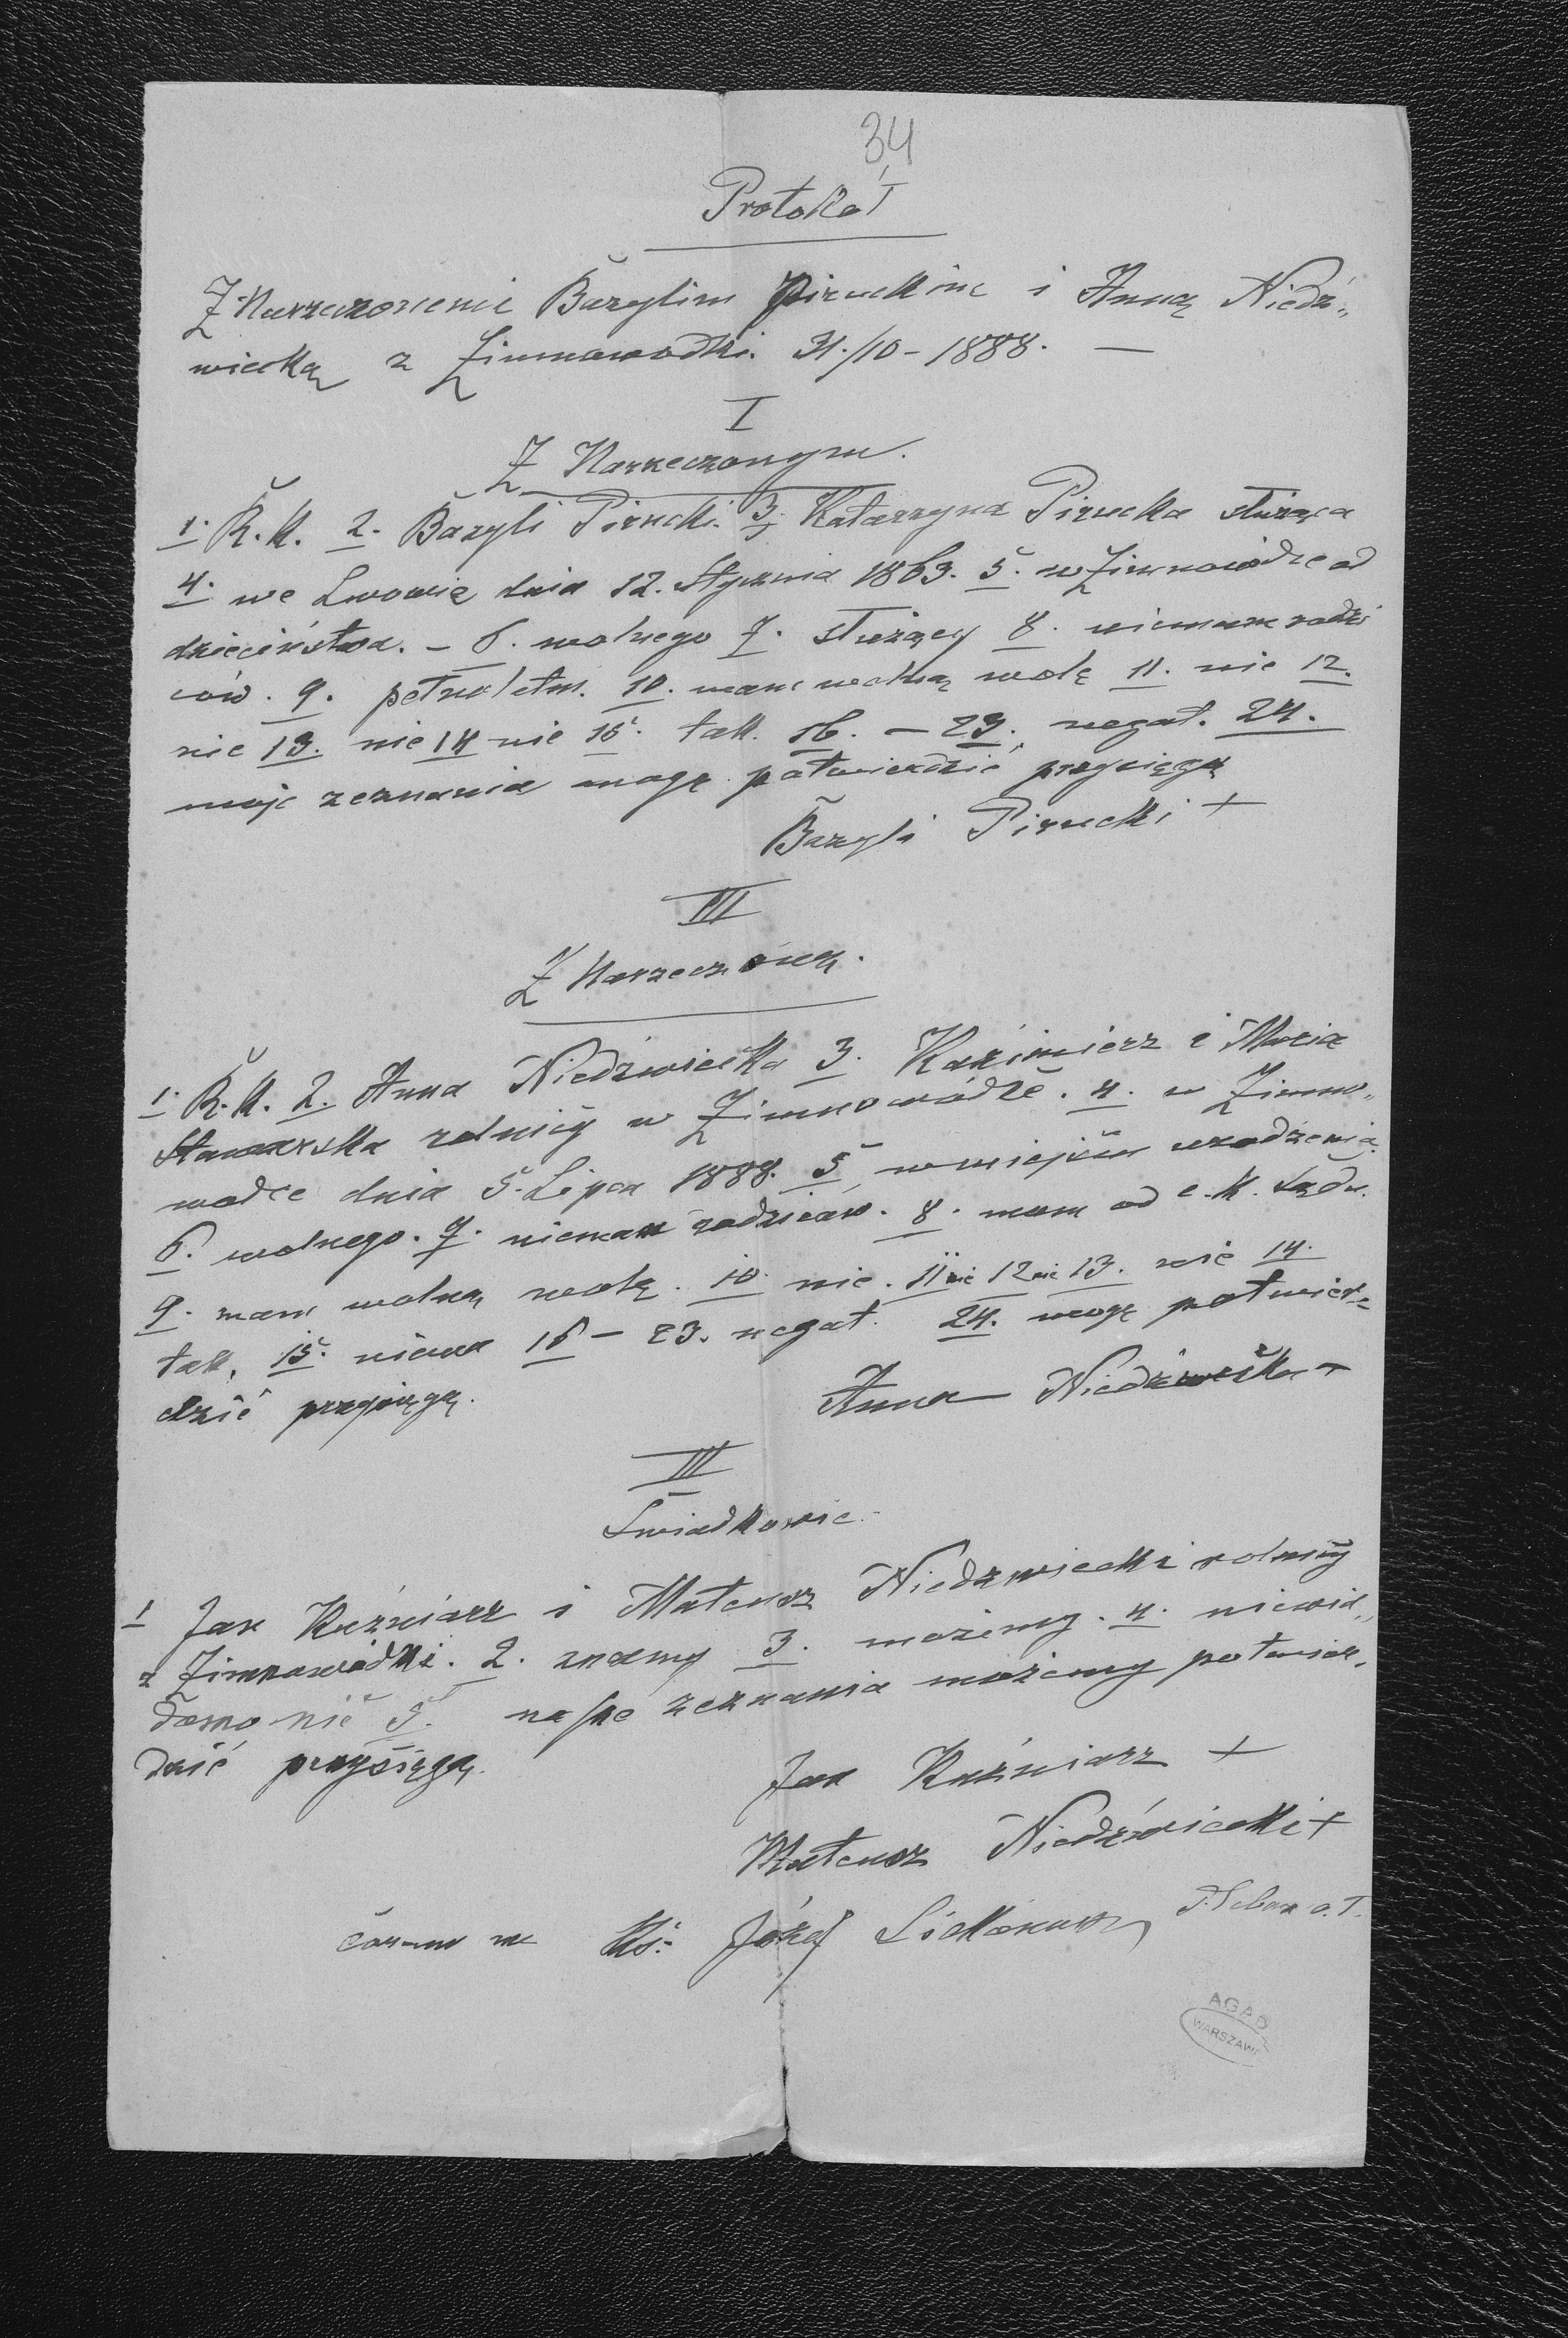 34
Protokół
Z Narzeczonemi Bazylim Piruckim i Anną Niedź„
wiecką z Zimnowodki. 31./10 - 1888. —
I
Z Narzeczonym.
1. R.K. 2. Bazyli Pirucki. 3. Katarzyna Pirucka służąca
4. we Lwowie dnia 12. Stycznia 1863. 5. w Zimnowódce od
dzieciństwa. - 6. wolnego 7. służący 8. niemam rodzi
ców. 9. pełnoletni. 10. mam wolną wolę 11. nie 12.
nie 13. nie 14 nie 15. tak. 16. — 23. negat. 24.
moje zeznania mogę potwierdzić przysięgą
Bazyli Pirucki +
III
Z Narzeczoną.
1. R.K. 2. Anna Niedźwiecka 3. Kazimierz i Maria
Stawarska rolnicy w Zimnowódce. 4. w Zimno„
wodce dnia 5. Lipca 1888. 5. w miejscu urodzenia.
6. wolnego. 7. niemam rodziców. 8. mam od c.k. Sądu.
9. mam wolną wolę. 10. nie. 11 nie 12 nie 13. nie 14.
tak, 15. niema 16 — 23. negat. 24. mogę potwier„
dzić przysięgą.
Anna Niedźwiecka +
III
Świadkowie.
1 Jan Kuźniarz i Mateusz Niedzwiecki rolnicy
z Zimnowódki. 2. znamy 3. możemy. 4. niewia„
domo nic 5. nasze zeznania możemy potwier„
dzić przysięgą.
Jan Kuźniarz +
Mateusz Niedźwiecki +
Ks. Józef
AGAD
WARSZAWA